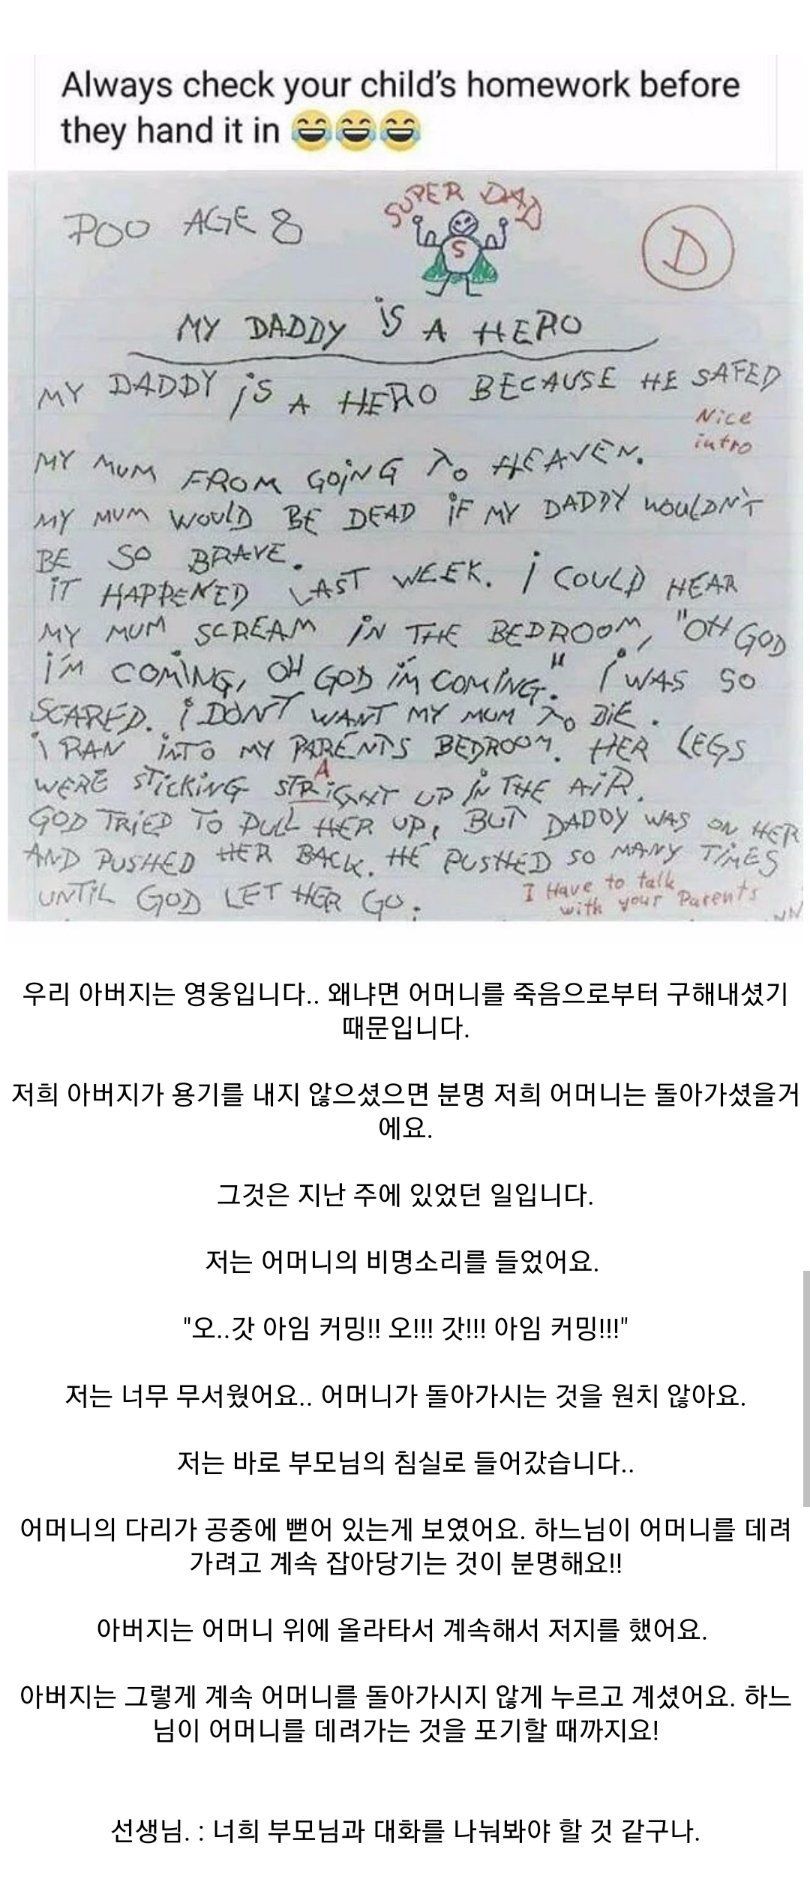 Always check your child's homework before
they hand it in 😂😂😂
SUPER DAD
POO AGE 8
S
D
MY DADDY iS A HERO
MY DADDY iS A HERO BECAUSE HE SAFED
Nice
intro
MY MUM FROM GOiNG TO HEAVEN.
MY MUM WOULD BE DEAD iF MY DADDY WOULDN'T
BE SO BRAVE.
iT HAPPENED LAST WEEK. i COULD HEAR
MY MUM SCREAM iN THE BEDROOM, "OH GOD
i'M COMiNG, OH GOD i'M COMiNG." i WAS SO
SCARED. i DON'T WANT MY MUM TO DiE.
i RAN iNTO MY PARENTS BEDROOM. HER LEGS
A
WERE STiCKiNG STRiGHT UP iN THE AiR.
GOD TRiED TO PULL HER UP, BUT DADDY WAS ON HER
AND PUSHED HER BACK. HE PUSHED SO MANY TiMES
UNTiL GOD LET HER GO.
I Have to talk
with your Parents
우리 아버지는 영웅입니다.. 왜냐면 어머니를 죽음으로부터 구해내셨기
때문입니다.
저희 아버지가 용기를 내지 않으셨으면 분명 저희 어머니는 돌아가셨을거
에요.
그것은 지난 주에 있었던 일입니다.
저는 어머니의 비명소리를 들었어요.
"오..갓 아임 커밍!! 오!!! 갓!!! 아임 커밍!!!"
저는 너무 무서웠어요.. 어머니가 돌아가시는 것을 원치 않아요.
저는 바로 부모님의 침실로 들어갔습니다..
어머니의 다리가 공중에 뻗어 있는게 보였어요. 하느님이 어머니를 데려
가려고 계속 잡아당기는 것이 분명해요!!
아버지는 어머니 위에 올라타서 계속해서 저지를 했어요.
아버지는 그렇게 계속 어머니를 돌아가시지 않게 누르고 계셨어요. 하느
님이 어머니를 데려가는 것을 포기할 때까지요!
선생님. : 너희 부모님과 대화를 나눠봐야 할 것 같구나.